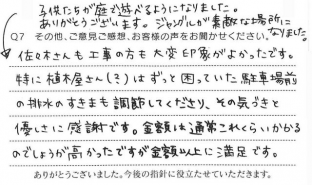 子供たちが庭で遊べるようになりました。
ありがとうございます。ジャングルが素敵な場所に
なりました。
Q7 その他、ご意見ご感想、お客様の声をお聞かせください。
佐々木さんも工事の方も大変印象がよかったです。
特に植木屋さん(?)はずっと困っていた駐車場前
の排水のすきまも調節してくださり、その気づきと
優しさに感謝です。金額は通常これくらいかかる
のでしょうが高かったですが金額以上に満足です。
ありがとうございました。今後の指針に役立たせていただきます。